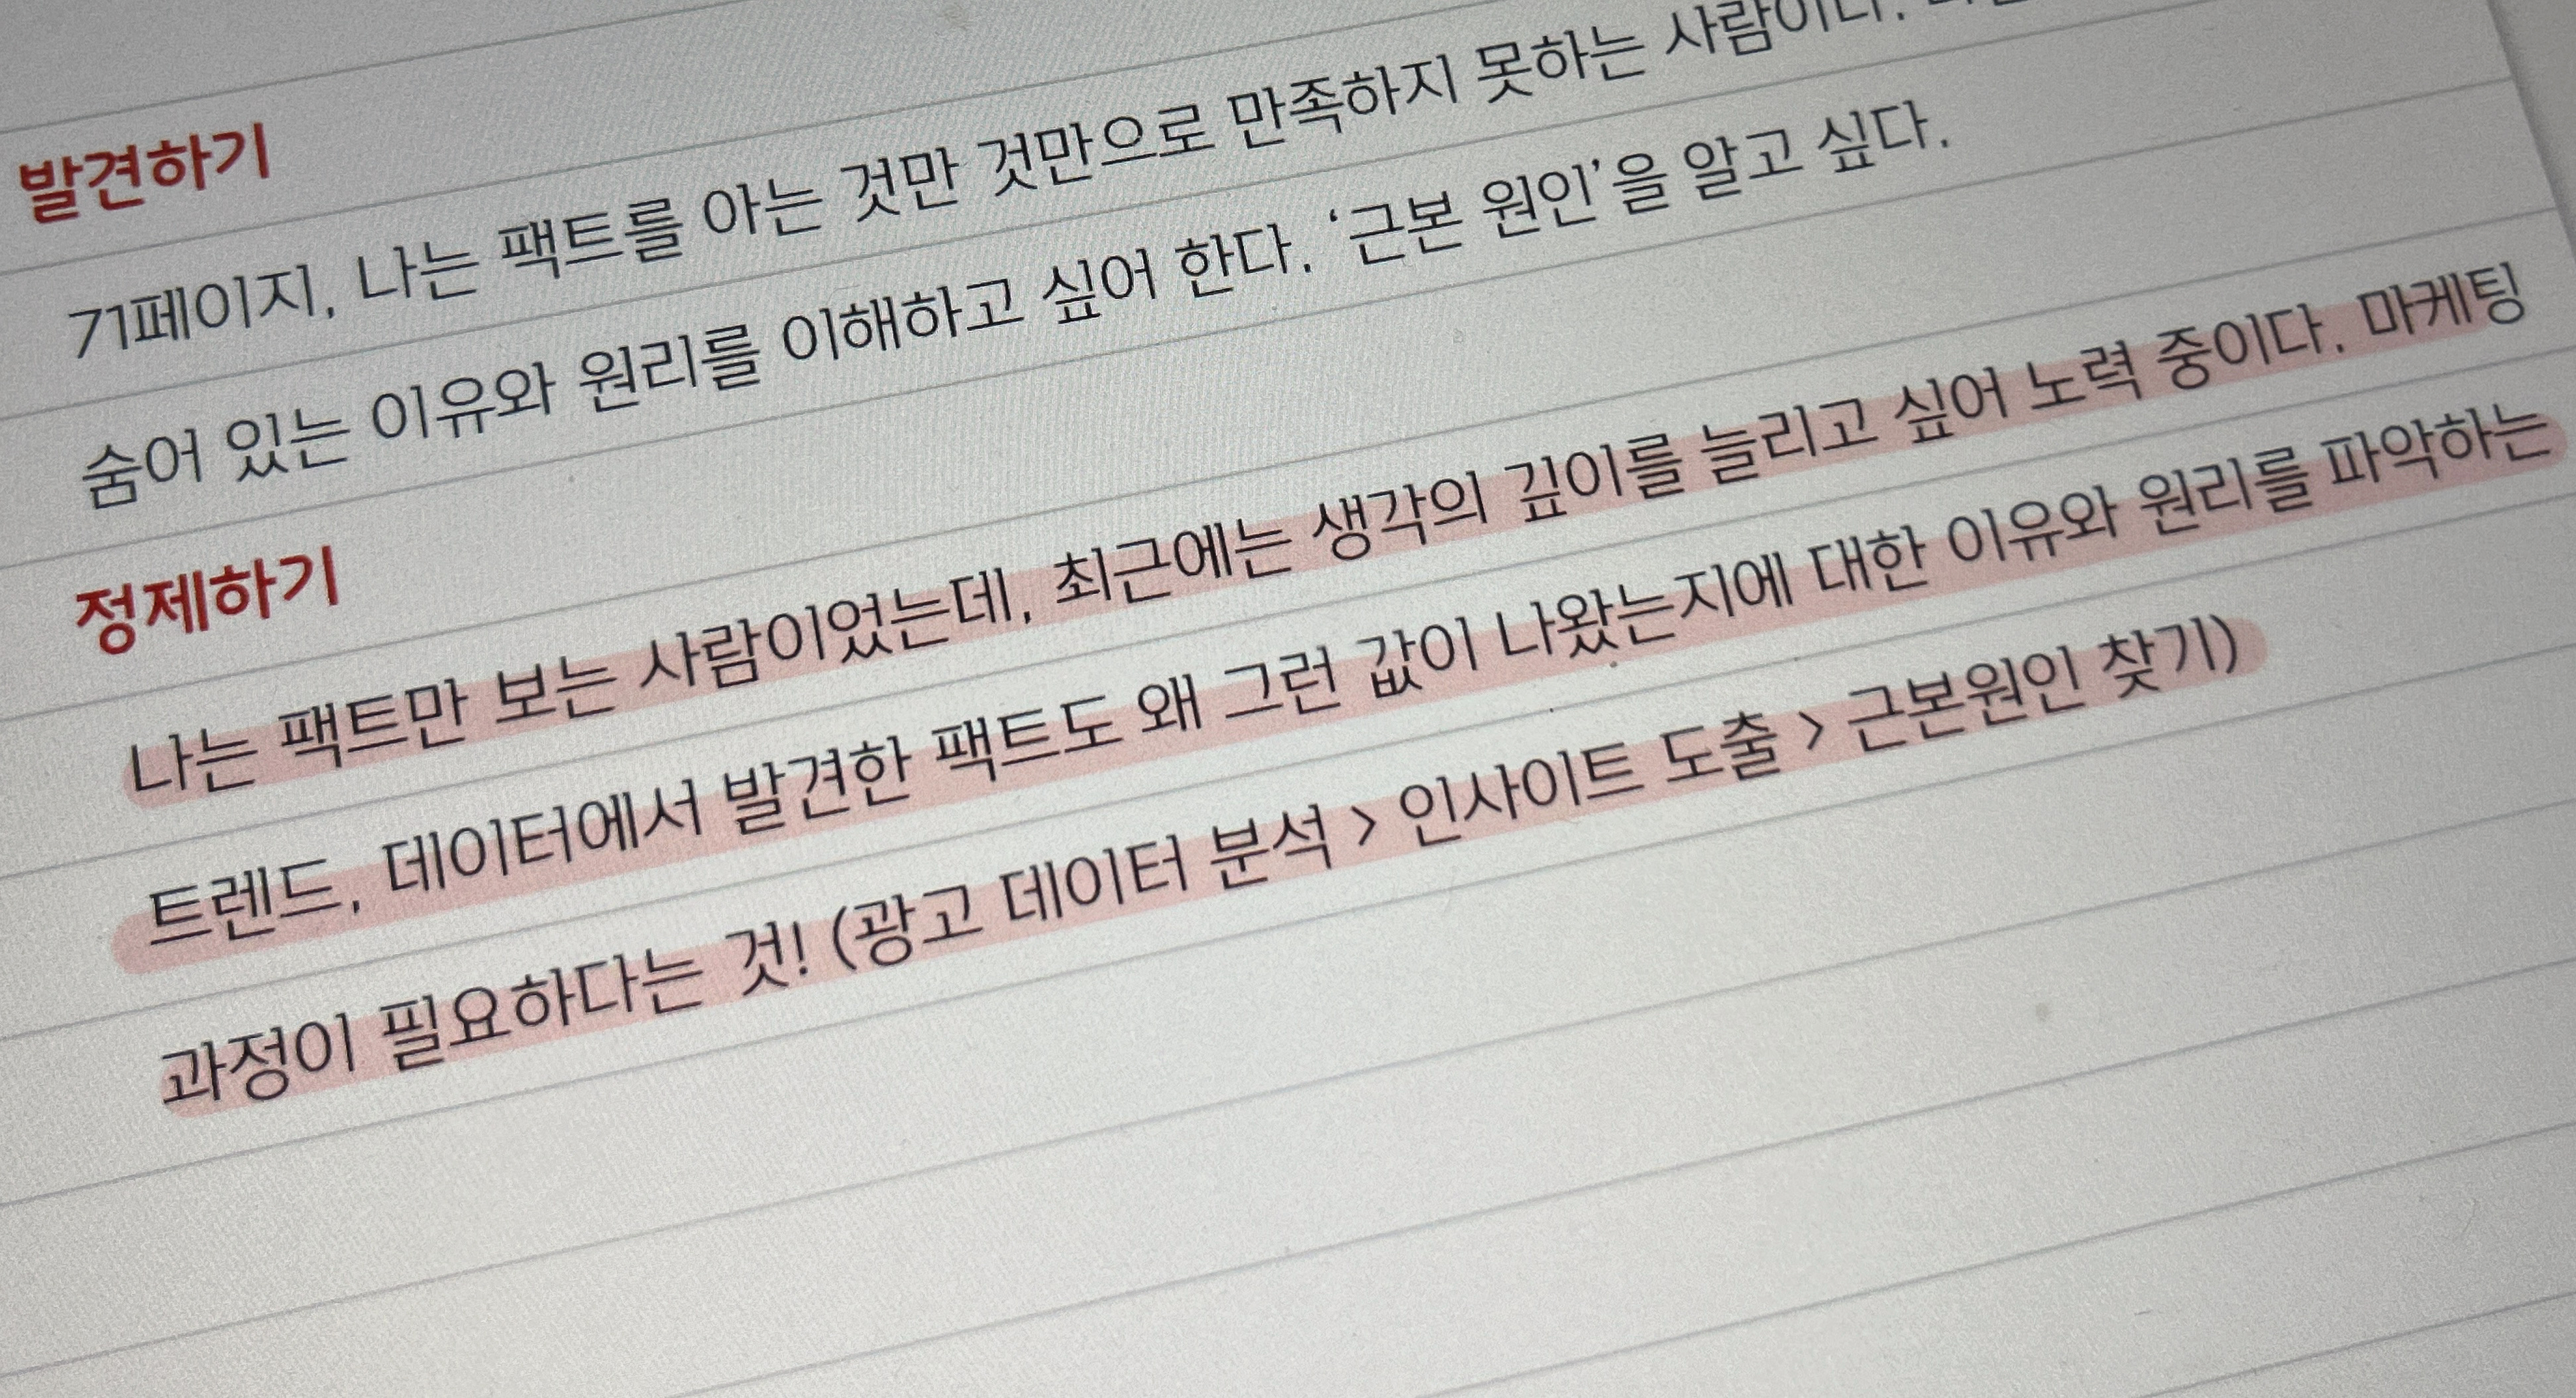 발견하기
71페이지, 나는 팩트를 아는 것만 것만으로 만족하지 못하는 사람이다.
숨어 있는 이유와 원리를 이해하고 싶어 한다. ‘근본 원인’을 알고 싶다.
정제하기
나는 팩트만 보는 사람이었는데, 최근에는 생각의 깊이를 늘리고 싶어 노력 중이다. 마케팅
트렌드, 데이터에서 발견한 팩트도 왜 그런 값이 나왔는지에 대한 이유와 원리를 파악하는
과정이 필요하다는 것! (광고 데이터 분석 > 인사이트 도출 > 근본원인 찾기)